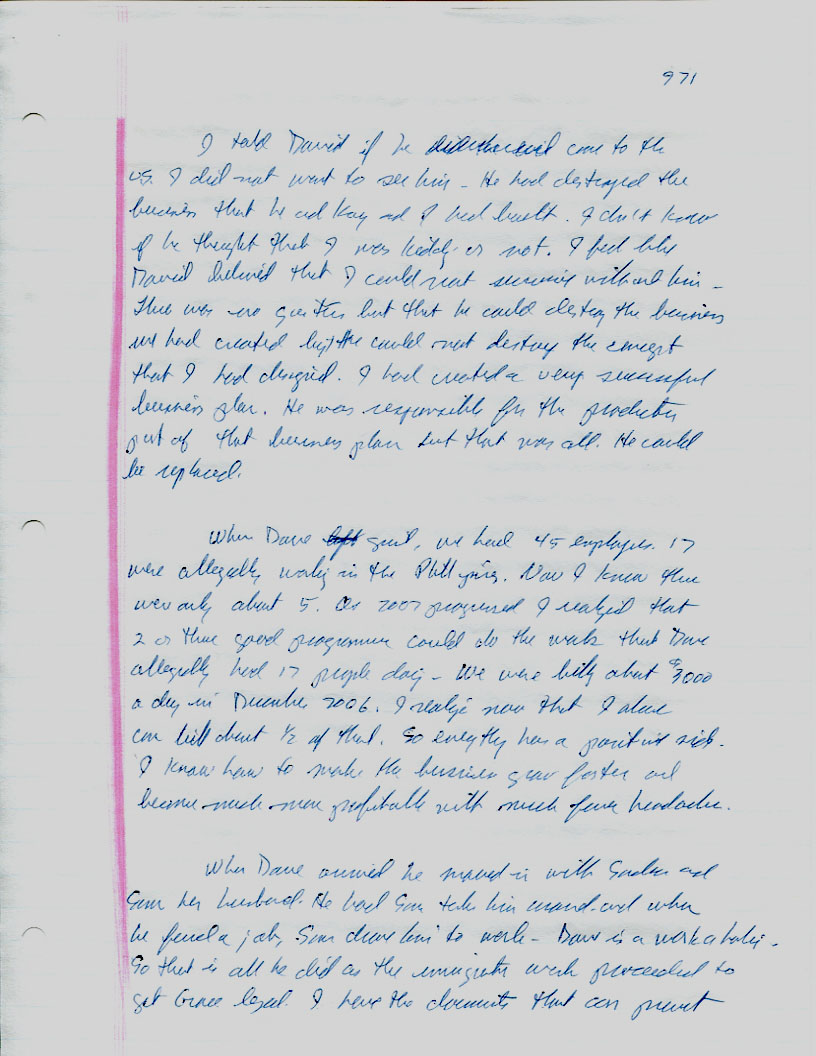 971
I told David if he did come to the
US. I did not want to see him - He had destroyed the
business that he and Kay and I had built. I don't know
if he thought that I was kiddg or not. I feel like
David believed that I could not survive without him -
There was no question but that he could destroy the business
we had created but he could not destroy the concept
that I had designed. I had created a very successful
business plan. He was responsible for the production
part of that business plan but that was all. He could
be replaced.
When Dave left quit, we had 45 employees. 17
were allegedly workg in the Phillipines. Now I know there
were only about 5. As 2007 progressed I realized that
2 or three good programmers could do the work that Dave
allegedly had 17 people doing - We were billg about $3000
a day in December 2006. I realize now that I alone
can bill about 1/2 of that. So everythg has a positive side.
I know how to make the business grow faster and
become much more profitable with much fewer headaches.
When Dave arrived he moved in with and
Sam her husband. He had Sam take him around and when
he found a job, Sam drove him to work - Dave is a workaholic -
So that is all he did as the immigrate work proceeded to
get Grace legal. I have the documents that can prevent